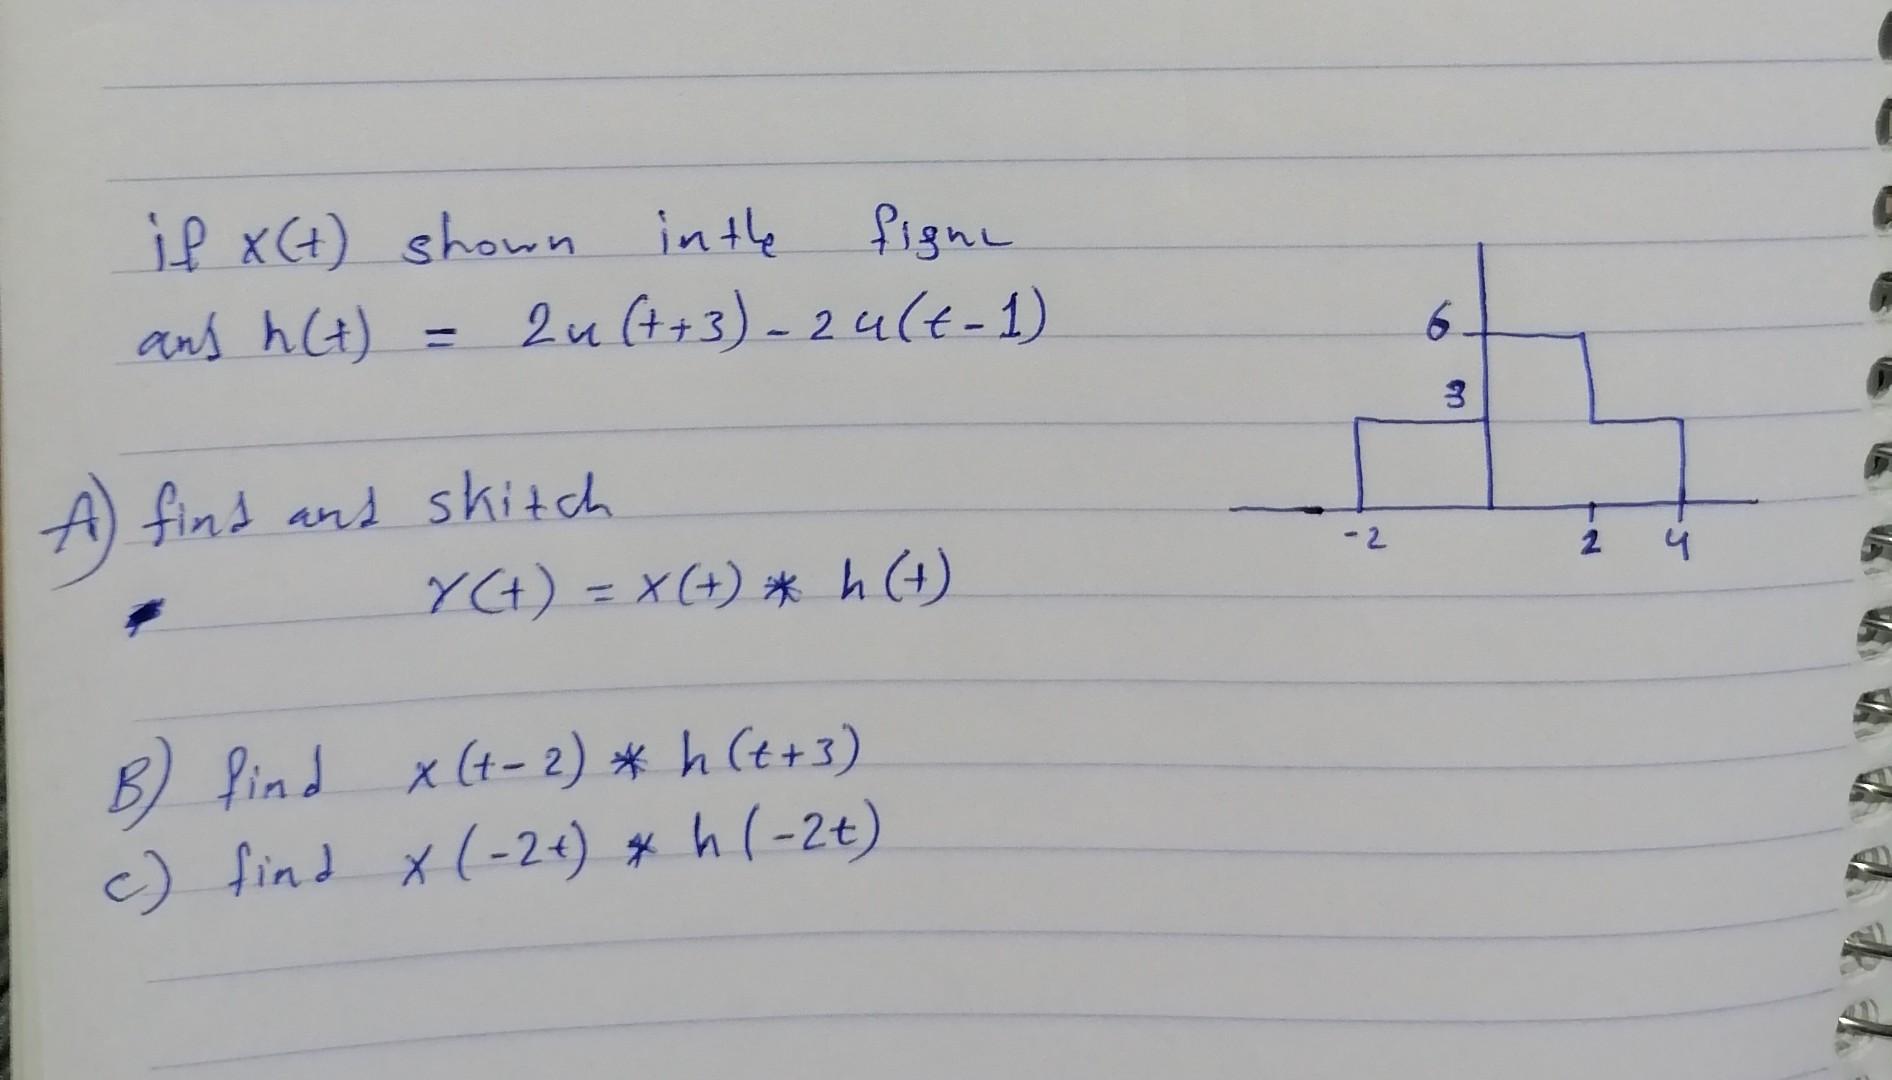 if x(t) shown in the figure
and h(t) = 2u(t+3) - 2u(t-1)
6
3
-2 2 4
A) find and skitch
Y(t) = x(t) * h(t)
B) find x(t-2) * h(t+3)
C) find x(-2t) * h(-2t)